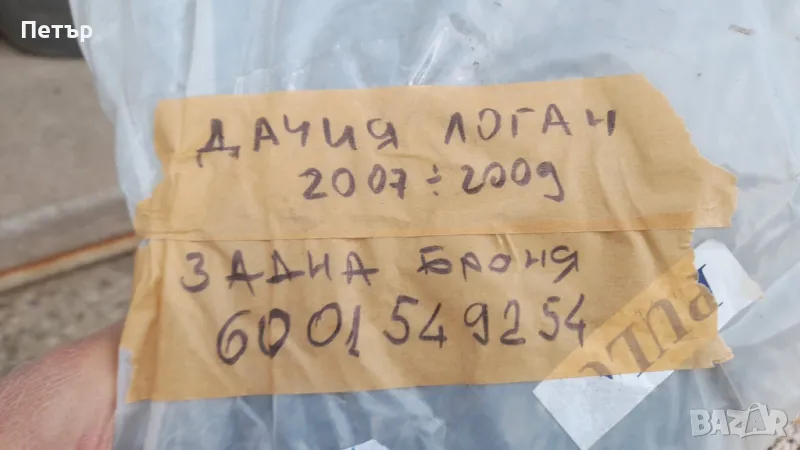 Петър
ДАЧИЯ ЛОГАН
2007÷2009
ЗАДНА БРОНЯ
6001549254
BAZAR